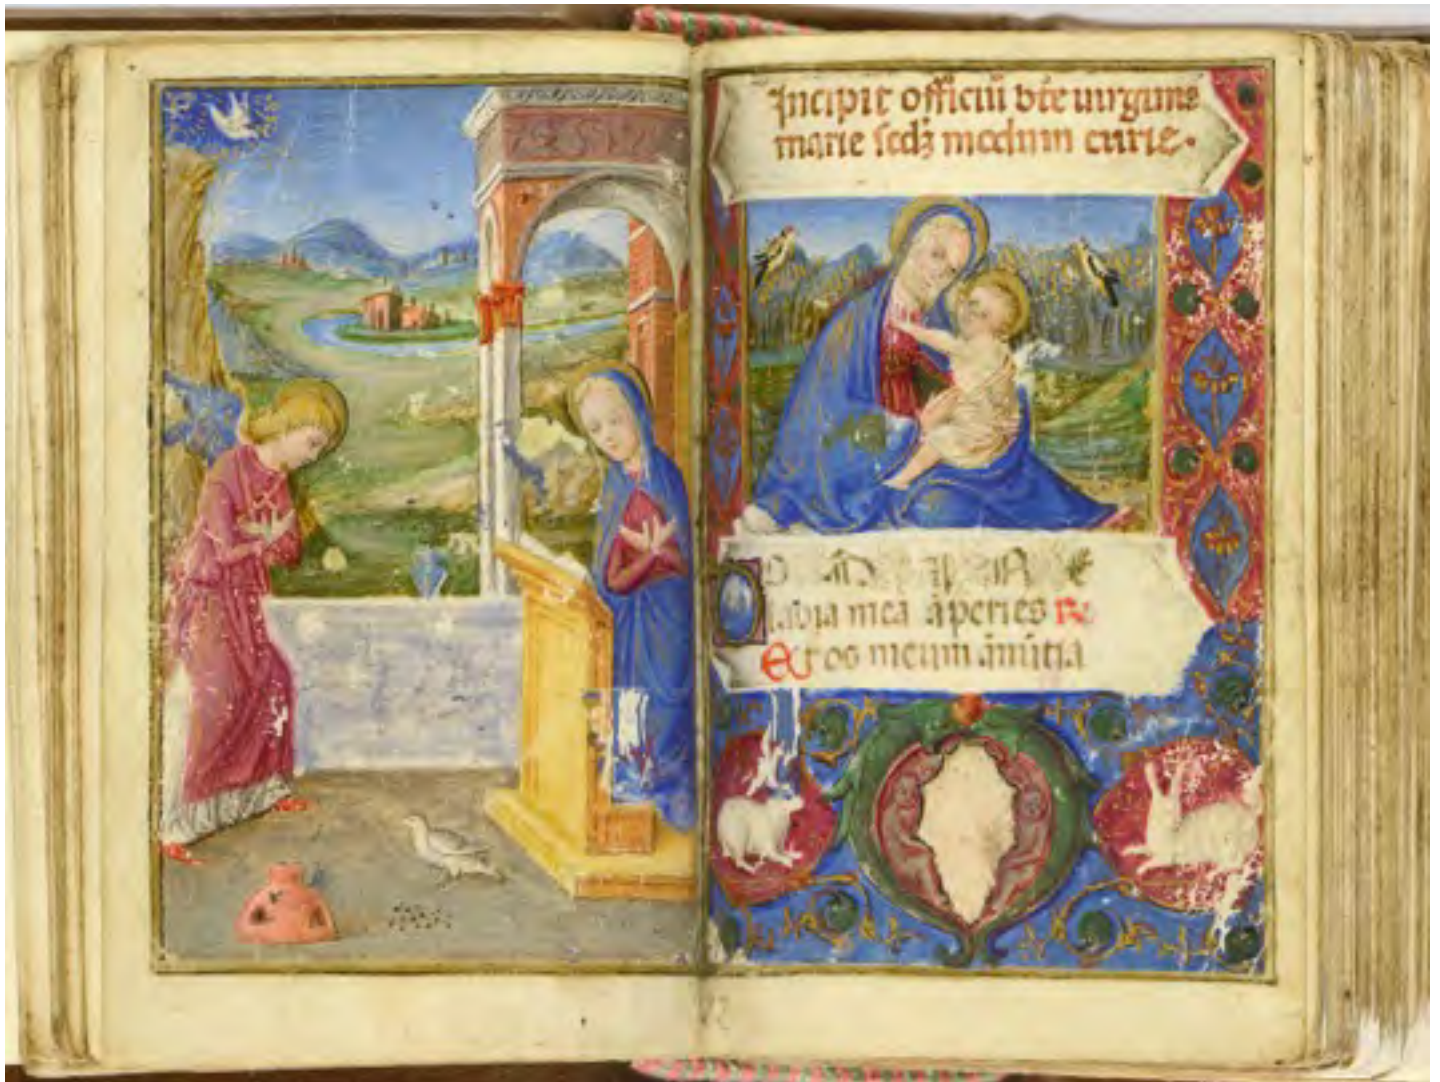 Incipit officiū bte uirginis
marie scdȝ modum curie.
labia mea aperies R
Et os meum ānūtia